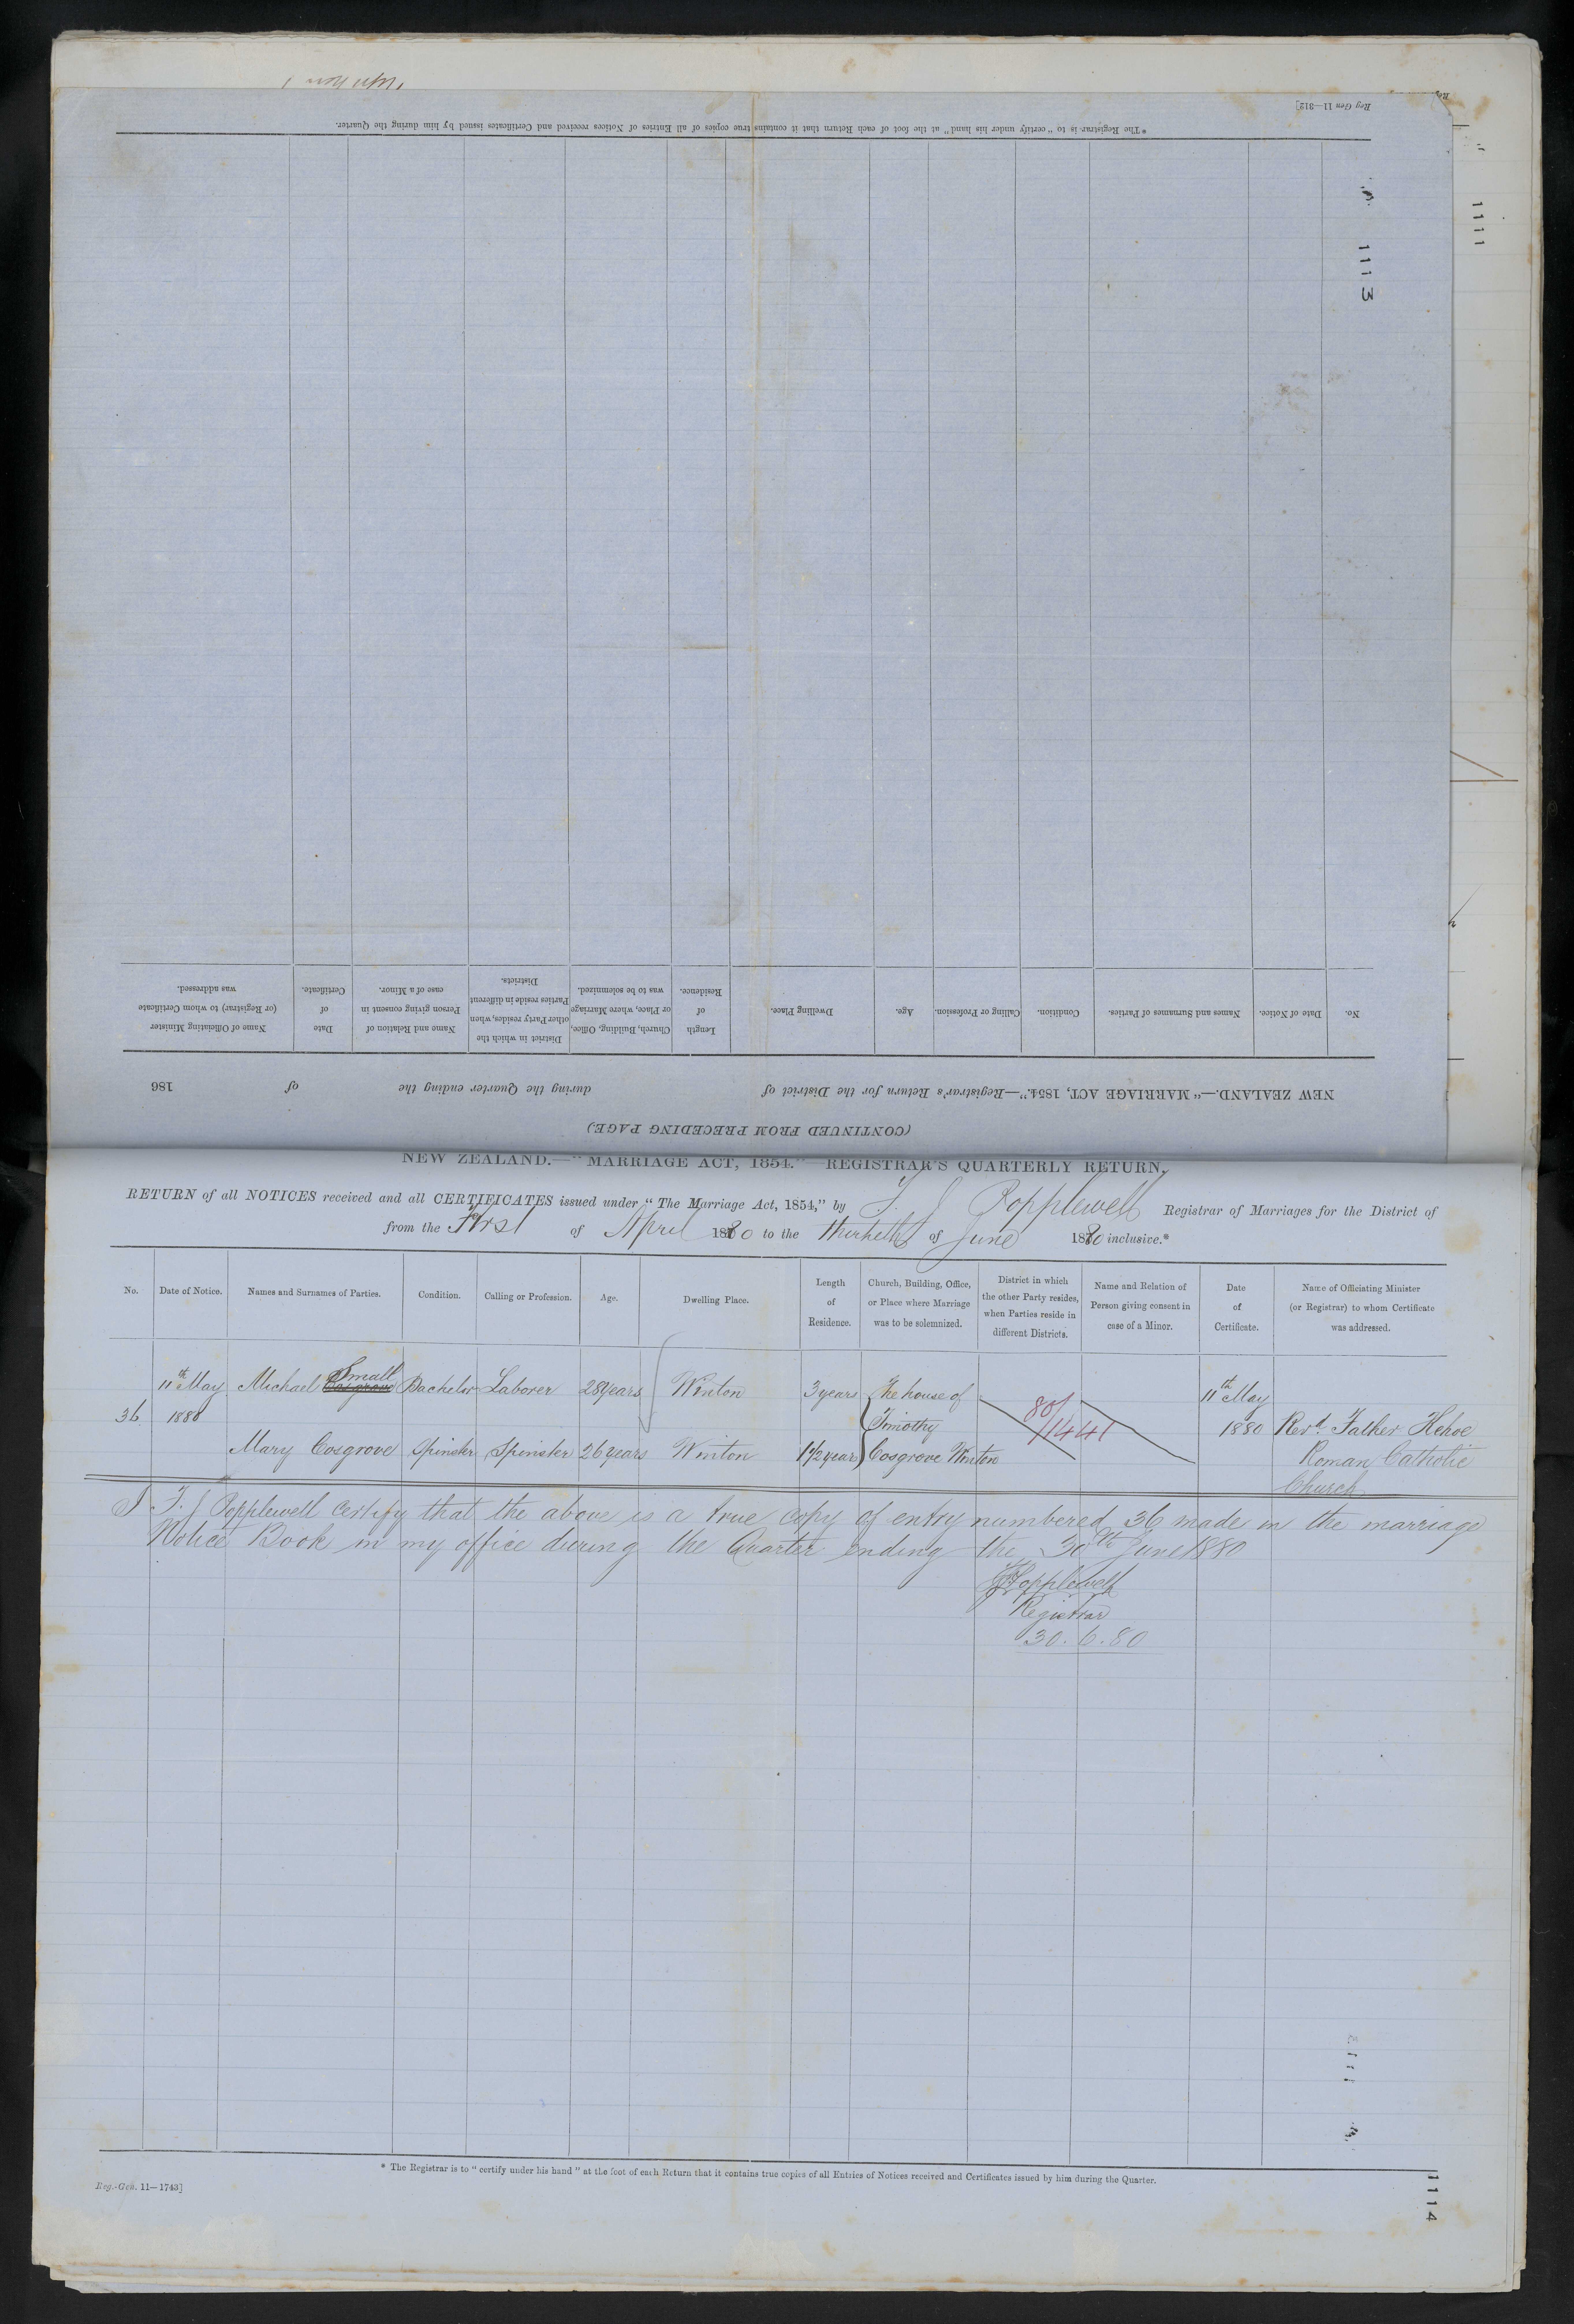 Reg Gen 11—312]
* The Registrar is to "certify under his hand" at the foot of each Return that it contains true copies of all Entries of Notices received and Certificates issued by him during the Quarter.
1111
1113
(CONTINUED FROM PRECEDING PAGE)
NEW ZEALAND.—"MARRIAGE ACT, 1854."—Registrar's Return for the District of during the Quarter ending the of 186
No. Date of Notice. Names and Surnames of Parties. Condition. Calling or Profession. Age. Dwelling Place. Length of Residence. Church, Building, Office, or Place, where Marriage was to be solemnized. District in which the other Party resides, when Parties reside in different Districts. Name and Relation of Person giving consent in case of a Minor. Date of Certificate. Name of Officiating Minister (or Registrar) to whom Certificate was addressed.
NEW ZEALAND.—"MARRIAGE ACT, 1854."—REGISTRAR'S QUARTERLY RETURN.
RETURN of all NOTICES received and all CERTIFICATES issued under "The Marriage Act, 1854," by T. J Popplewell Registrar of Marriages for the District of
from the First of April 1880 to the thirtieth of June 1880 inclusive.*
No. Date of Notice. Names and Surnames of Parties. Condition. Calling or Profession. Age. Dwelling Place. Length of Residence. Church, Building, Office, or Place where Marriage was to be solemnized. District in which the other Party resides, when Parties reside in different Districts. Name and Relation of Person giving consent in case of a Minor. Date of Certificate. Name of Officiating Minister (or Registrar) to whom Certificate was addressed.
Small
11th May Michael Cosgrove Bachelor Laborer 28 years Winton 3 years The house of 80/ 11th May
36 1880 Timothy 1441 1880 Revd. Father Kehoe
Mary Cosgrove Spinster Spinster 26 years Winton 1 1/2 year Cosgrove Winton Roman Catholic
Church
I T. J Popplewell certify that the above is a true copy of entry numbered 36 made in the marriage
Notice Book in my office during the Quarter ending the 30th June 1880
TJPopplewell
Registrar
30.6.80
* The Registrar is to "certify under his hand" at the foot of each Return that it contains true copies of all Entries of Notices received and Certificates issued by him during the Quarter.
Reg.-Gen. 11—1743]
1114